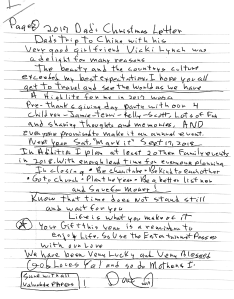 Page 2 2017 Dad's Christmas Letter
Dad's Trip to China with his
Very good girlfriend Vicki Lynch was
a delight for many reasons
The beauty and the countrys culture
exceeded my best expectations. I hope you all
get to Travel and see the world as we have
A Highlite for me in 2017 was a
Pre-Thanksgiving Day Party with our 4
Children - Jamie - Terry - Kelly - Scott. Lots of Fun
and sharing Thoughts and memories, AND
everyone promised to make it an annual event.
Next year Sat. "Mark it" Sept 15, 2018
In Addition I plan at least 2 other Family events
in 2018. With enough lead time for everyones planning
In closing • Be charitable • Be kind to each other
• Go to church • Plan the year • Be a better listener
and Save for moer!
Know that time does not stand still
and wait for you
Life is what you make of it
Your Gift this year is a reminder to
enjoy Life. So Use the Entertainment Passes
with our Love
We have been Very Lucky and Very Blessed
(God Loves Ya! and so do Mothers I.
Save with all
Valuable Papers
Dad